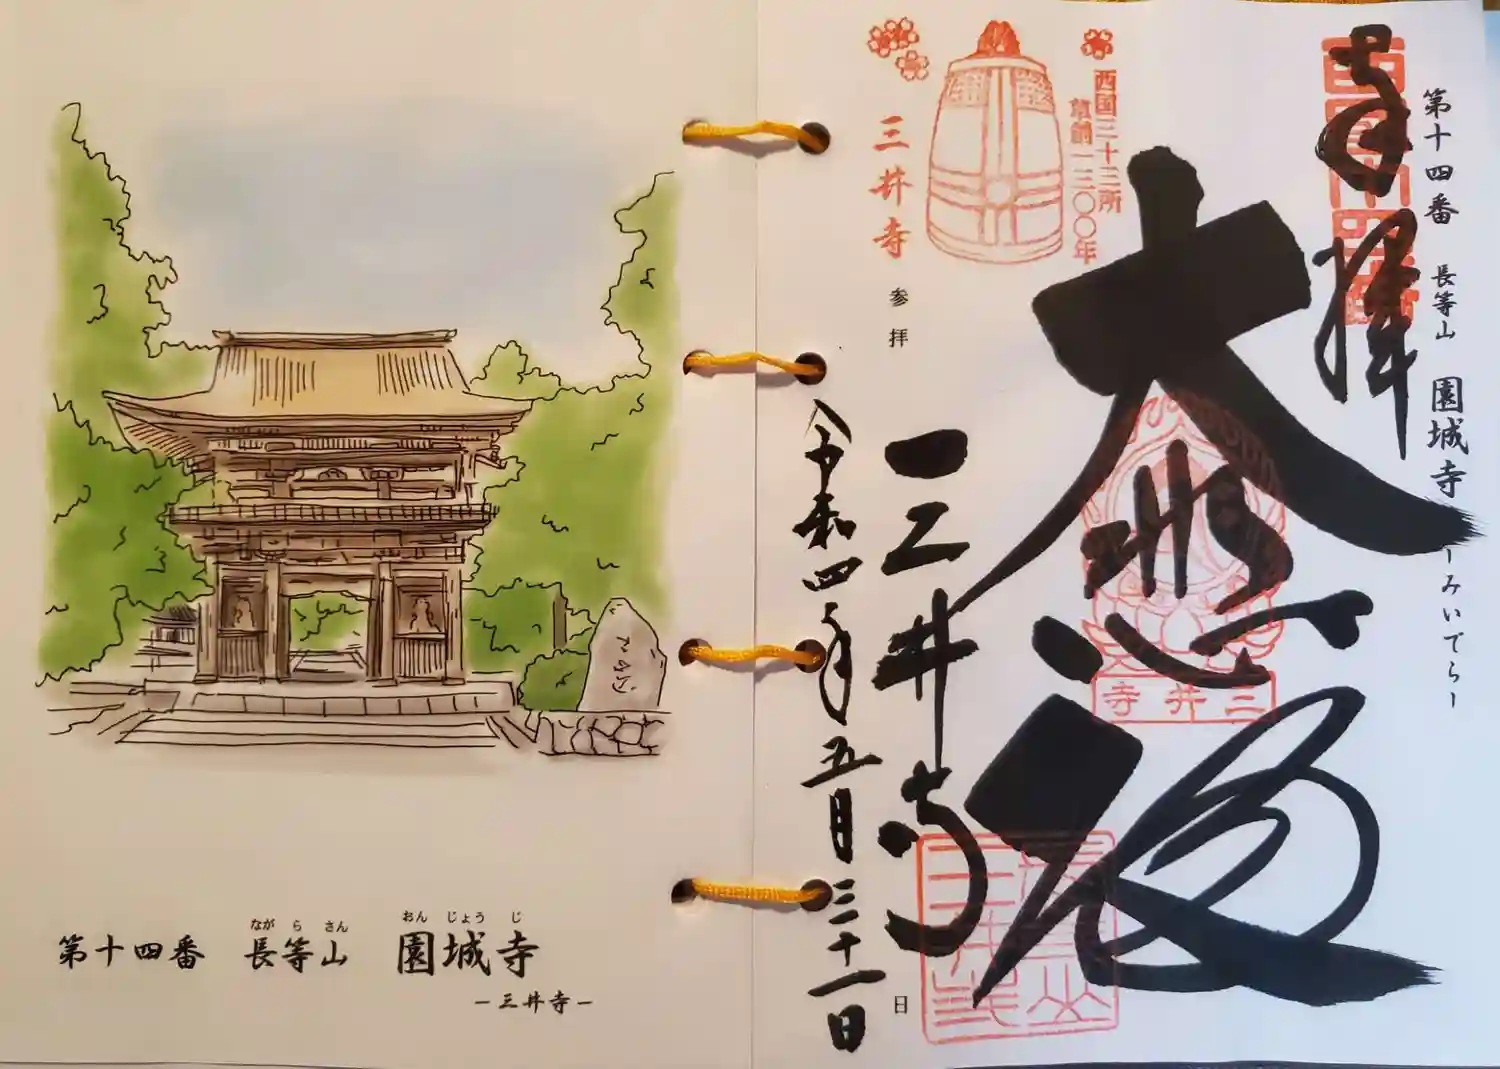 第十四番 長等山 園城寺 ーみいでらー
奉拝
大悲殿
三井寺
令和四年五月三十一日
日
西国三十三所
草創一三〇〇年
三井寺
参拝
三井寺
第十四番 長等山 園城寺
なが ら さん おん じょう じ
―三井寺―